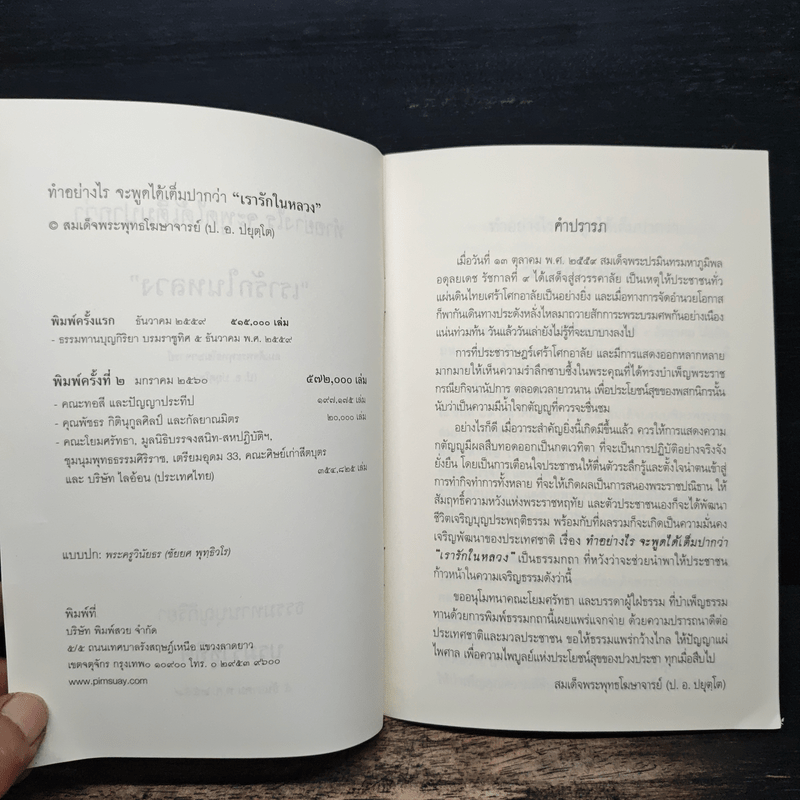 ทำอย่างไร จะพูดได้เต็มปากว่า “เรารักในหลวง”
© สมเด็จพระพุทธโฆษาจารย์ (ป. อ. ปยุตฺโต)
พิมพ์ครั้งแรก ธันวาคม ๒๕๕๙ ๕๑๕,๐๐๐ เล่ม
- ธรรมทานบุญกิริยา บรมราชูทิศ ๕ ธันวาคม พ.ศ. ๒๕๕๙
พิมพ์ครั้งที่ ๒ มกราคม ๒๕๖๐ ๕๗๒,๐๐๐ เล่ม
- คณะทอสี และปัญญาประทีป ๑๙๗,๑๗๕ เล่ม
- คุณพัชธร กิตินุกูลศิลป์ และกัลยาณมิตร ๒๐,๐๐๐ เล่ม
- คณะโยมศรัทธา, มูลนิธิบรรจงสนิท-สหปฏิบัติฯ,
ชุมนุมพุทธธรรมศิริราช, เตรียมอุดม 33, คณะศิษย์เก่าสีตบุตร
และ บริษัท ไลอ้อน (ประเทศไทย) ๓๕๔,๘๒๕ เล่ม
แบบปก: พระครูวินัยธร (ชัยยศ พุทฺธิวโร)
พิมพ์ที่
บริษัท พิมพ์สวย จำกัด
๕/๕ ถนนเทศบาลรังสฤษฎ์เหนือ แขวงลาดยาว
เขตจตุจักร กรุงเทพฯ ๑๐๙๐๐ โทร. ๐ ๒๙๕๓ ๙๖๐๐
www.pimsuay.com
คำปรารภ
เมื่อวันที่ ๑๓ ตุลาคม พ.ศ. ๒๕๕๙ สมเด็จพระปรมินทรมหาภูมิพล
อดุลยเดช รัชกาลที่ ๙ ได้เสด็จสู่สวรรคาลัย เป็นเหตุให้ประชาชนทั่ว
แผ่นดินไทยเศร้าโศกอาลัยเป็นอย่างยิ่ง และเมื่อทางการจัดอำนวยโอกาส
ก็พากันเดินทางประดังหลั่งไหลมาถวายสักการะพระบรมศพกันอย่างเนือง
แน่นท่วมท้น วันแล้ววันเล่ายังไม่รู้ที่จะเบาบางลงไป
การที่ประชาราษฎร์เศร้าโศกอาลัย และมีการแสดงออกหลากหลาย
มากมายให้เห็นความรำลึกซาบซึ้งในพระคุณที่ได้ทรงบำเพ็ญพระราช
กรณียกิจนานัปการ ตลอดเวลายาวนาน เพื่อประโยชน์สุขของพสกนิกรนั้น
นับว่าเป็นความมีน้ำใจกตัญญูที่ควรจะชื่นชม
อย่างไรก็ดี เมื่อวาระสำคัญยิ่งนี้เกิดมีขึ้นแล้ว ควรให้การแสดงความ
กตัญญูมีผลสืบทอดออกเป็นกตเวทิตา ที่จะเป็นการปฏิบัติอย่างจริงจัง
ยั่งยืน โดยเป็นการเตือนใจประชาชนให้ตื่นตัวระลึกรู้และตั้งใจนำตนเข้าสู่
การทำกิจทำการทั้งหลาย ที่จะให้เกิดผลเป็นการสนองพระราชปณิธาน ให้
สัมฤทธิ์ความหวังแห่งพระราชหฤทัย และตัวประชาชนเองก็จะได้พัฒนา
ชีวิตเจริญบุญประพฤติธรรม พร้อมกับที่ผลรวมก็จะเกิดเป็นความมั่นคง
เจริญพัฒนาของประเทศชาติ เรื่อง ทำอย่างไร จะพูดได้เต็มปากว่า
“เรารักในหลวง” เป็นธรรมกถา ที่หวังว่าจะช่วยนำพาให้ประชาชน
ก้าวหน้าในความเจริญธรรมดังว่านี้
ขออนุโมทนาคณะโยมศรัทธา และบรรดาผู้ใฝ่ธรรม ที่บำเพ็ญธรรม
ทานด้วยการพิมพ์ธรรมกถานี้เผยแพร่แจกจ่าย ด้วยความปรารถนาดีต่อ
ประเทศชาติและมวลประชาชน ขอให้ธรรมแพร่กว้างไกล ให้ปัญญาแผ่
ไพศาล เพื่อความไพบูลย์แห่งประโยชน์สุขของปวงประชา ทุกเมื่อสืบไป
สมเด็จพระพุทธโฆษาจารย์ (ป. อ. ปยุตฺโต)